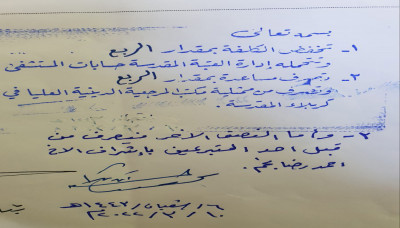 بسمه تعالى
١- تخفيض الكلفة بمقدار الربع
وتتحمله إدارة العتبة المقدسة حسابات المستشفى
٢- وتصرف مساعدة بمقدار الربع
وتصرف من مكتب المرجعية الدينية العليا في
كربلاء المقدسة.
٣- وأما النصف الآخر فيتصرف من
قبل احد المتبرعين بإشراف الاخ
احمد رضا
٦/شعبان/١٤٤٣هـ
١٠/٣/٢٠٢٢م